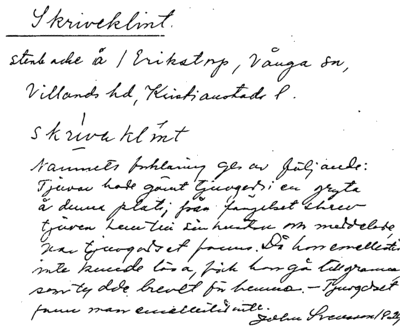 Skriveklint.
stenbacke å / Erikstorp, Vånga sn,
Villands hd, Kristianstads l.
skriva klint
Namnets förklaring ges av följande:
Tjuvar hade gömt tjuvgods i en gryta
å denna plats; från fängelset skrev
tjuven hem till sin hustru och meddelade
var tjuvgodset fanns. Då hon emellertid
inte kunde läsa, fick hon gå till grannen
som tydde brevet för henne. – Tjuvgodset
fann man emellertid inte.
John Svensson